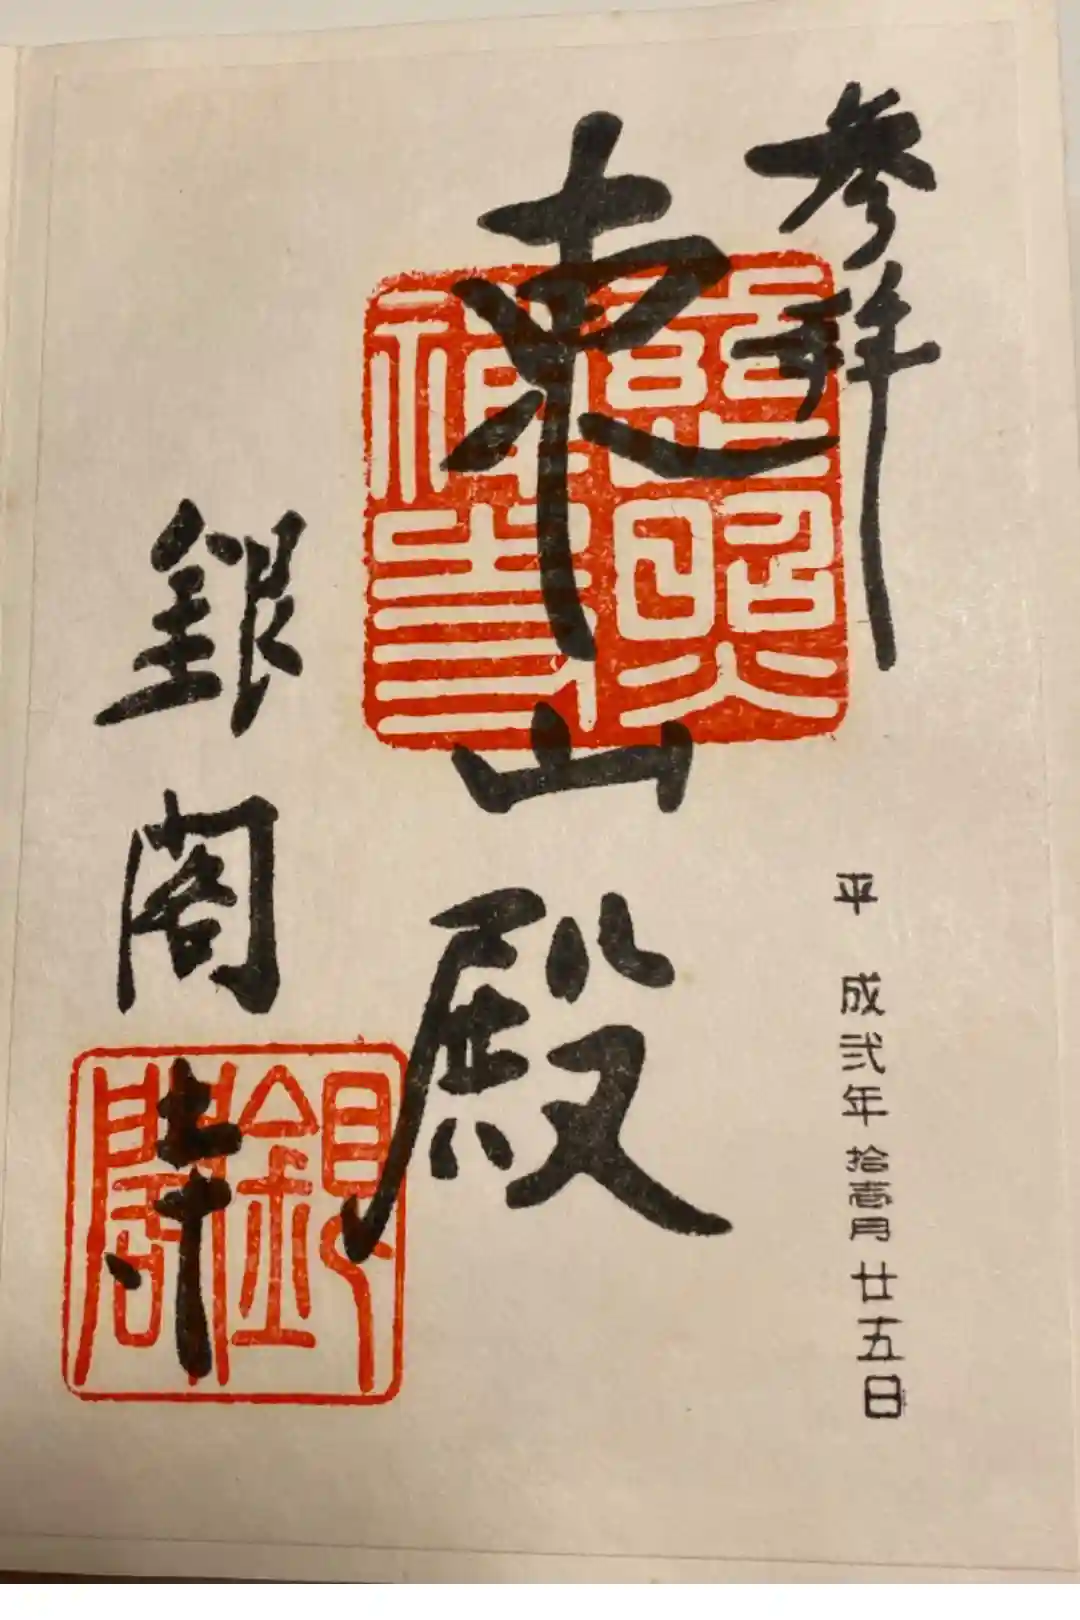 参拜
平成弐年拾壱月廿五日
慈照
禅寺
東山殿
銀閣寺
銀閣